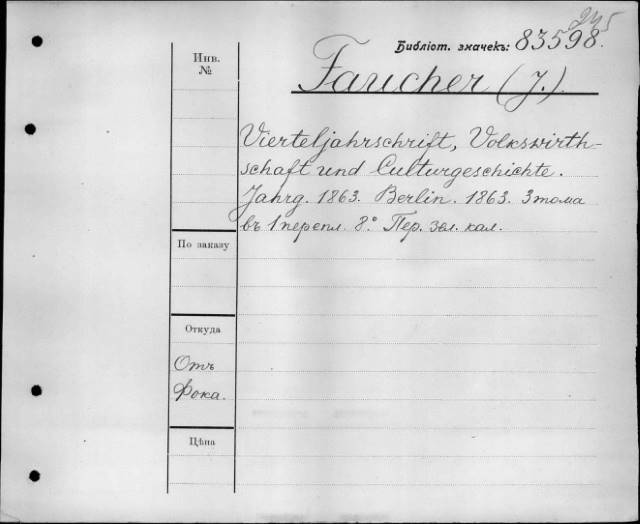 245
Библіот. значекъ: 83598.
Инв.
№
Faucher (J.)
Vierteljahrschrift, Volkswirth-
schaft und Culturgeschichte.
Jahrg. 1863. Berlin. 1863. 3 тома
въ 1 перепл. 8° Пер. зел. кал.
По заказу
Откуда
Отъ
Фока.
Цѣна